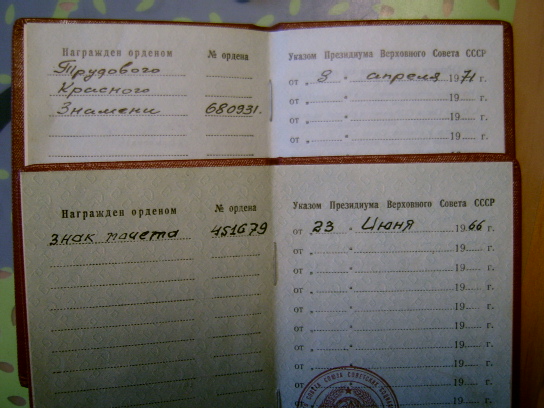 Награжден орденом № ордена Указом Президиума Верховного Совета СССР
Трудового от „ 8 “ апреля 1971 г.
Красного от „ “ 19 г.
Знамени 680931. от „ “ 19 г.
от „ “ 19 г.
от „ “ 19
Награжден орденом № ордена Указом Президиума Верховного Совета СССР
Знак почета 451679 от 23 “ Июня 1966 г.
от „ “ 19 г.
от „ “ 19 г.
от „ “ 19 г.
от „ “ 19 г.
от „ “ 19 г.
от „ “ 19 г.
от „ 19 г.
от 19 г.